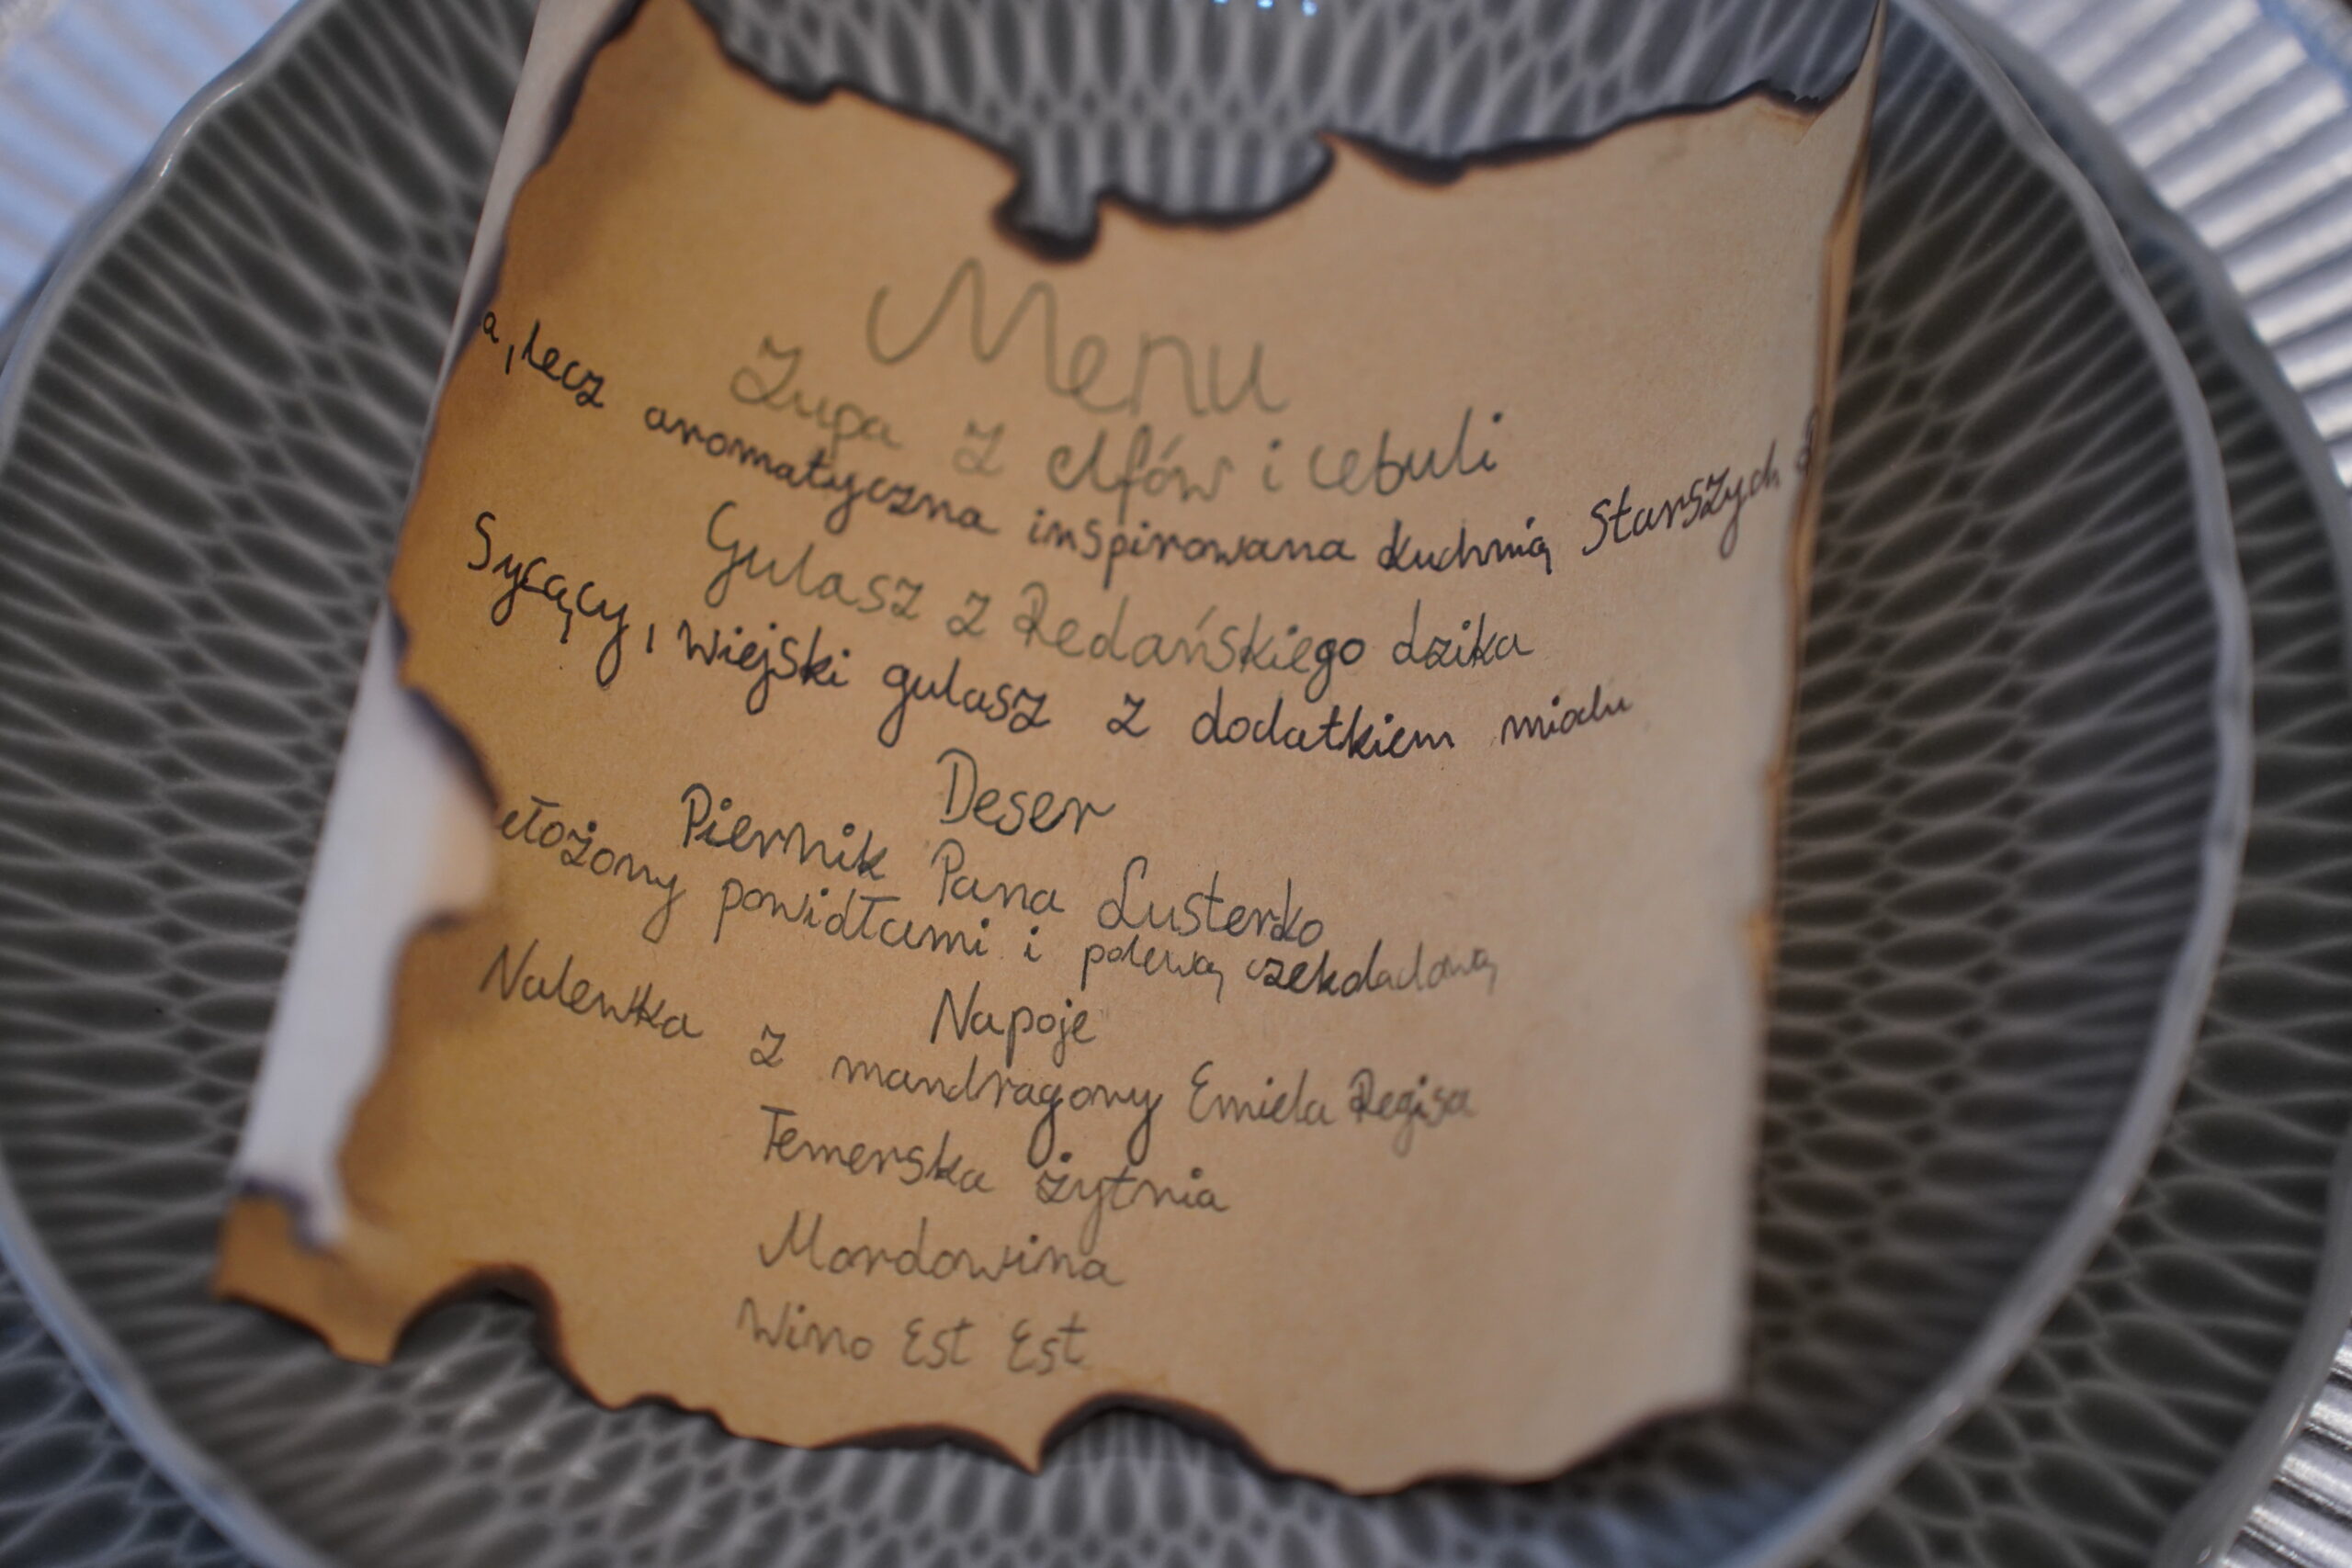 Menu
Zupa z elfów i cebuli
a, lecz aromatyczna inspirowana kuchnią Starszych
Gulasz z Redańskiego dzika
Sycący, wiejski gulasz z dodatkiem miodu
Deser
Piernik Pana Lusterko
ełożony powidłami i polewą czekoladową
Napoje
Nalewka z mandragory Emiela Regisa
Temerska żytnia
Mardowina
Wino Est Est